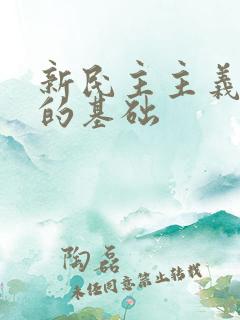 新民主主义
的基础
陶磊
未经同意禁止转载